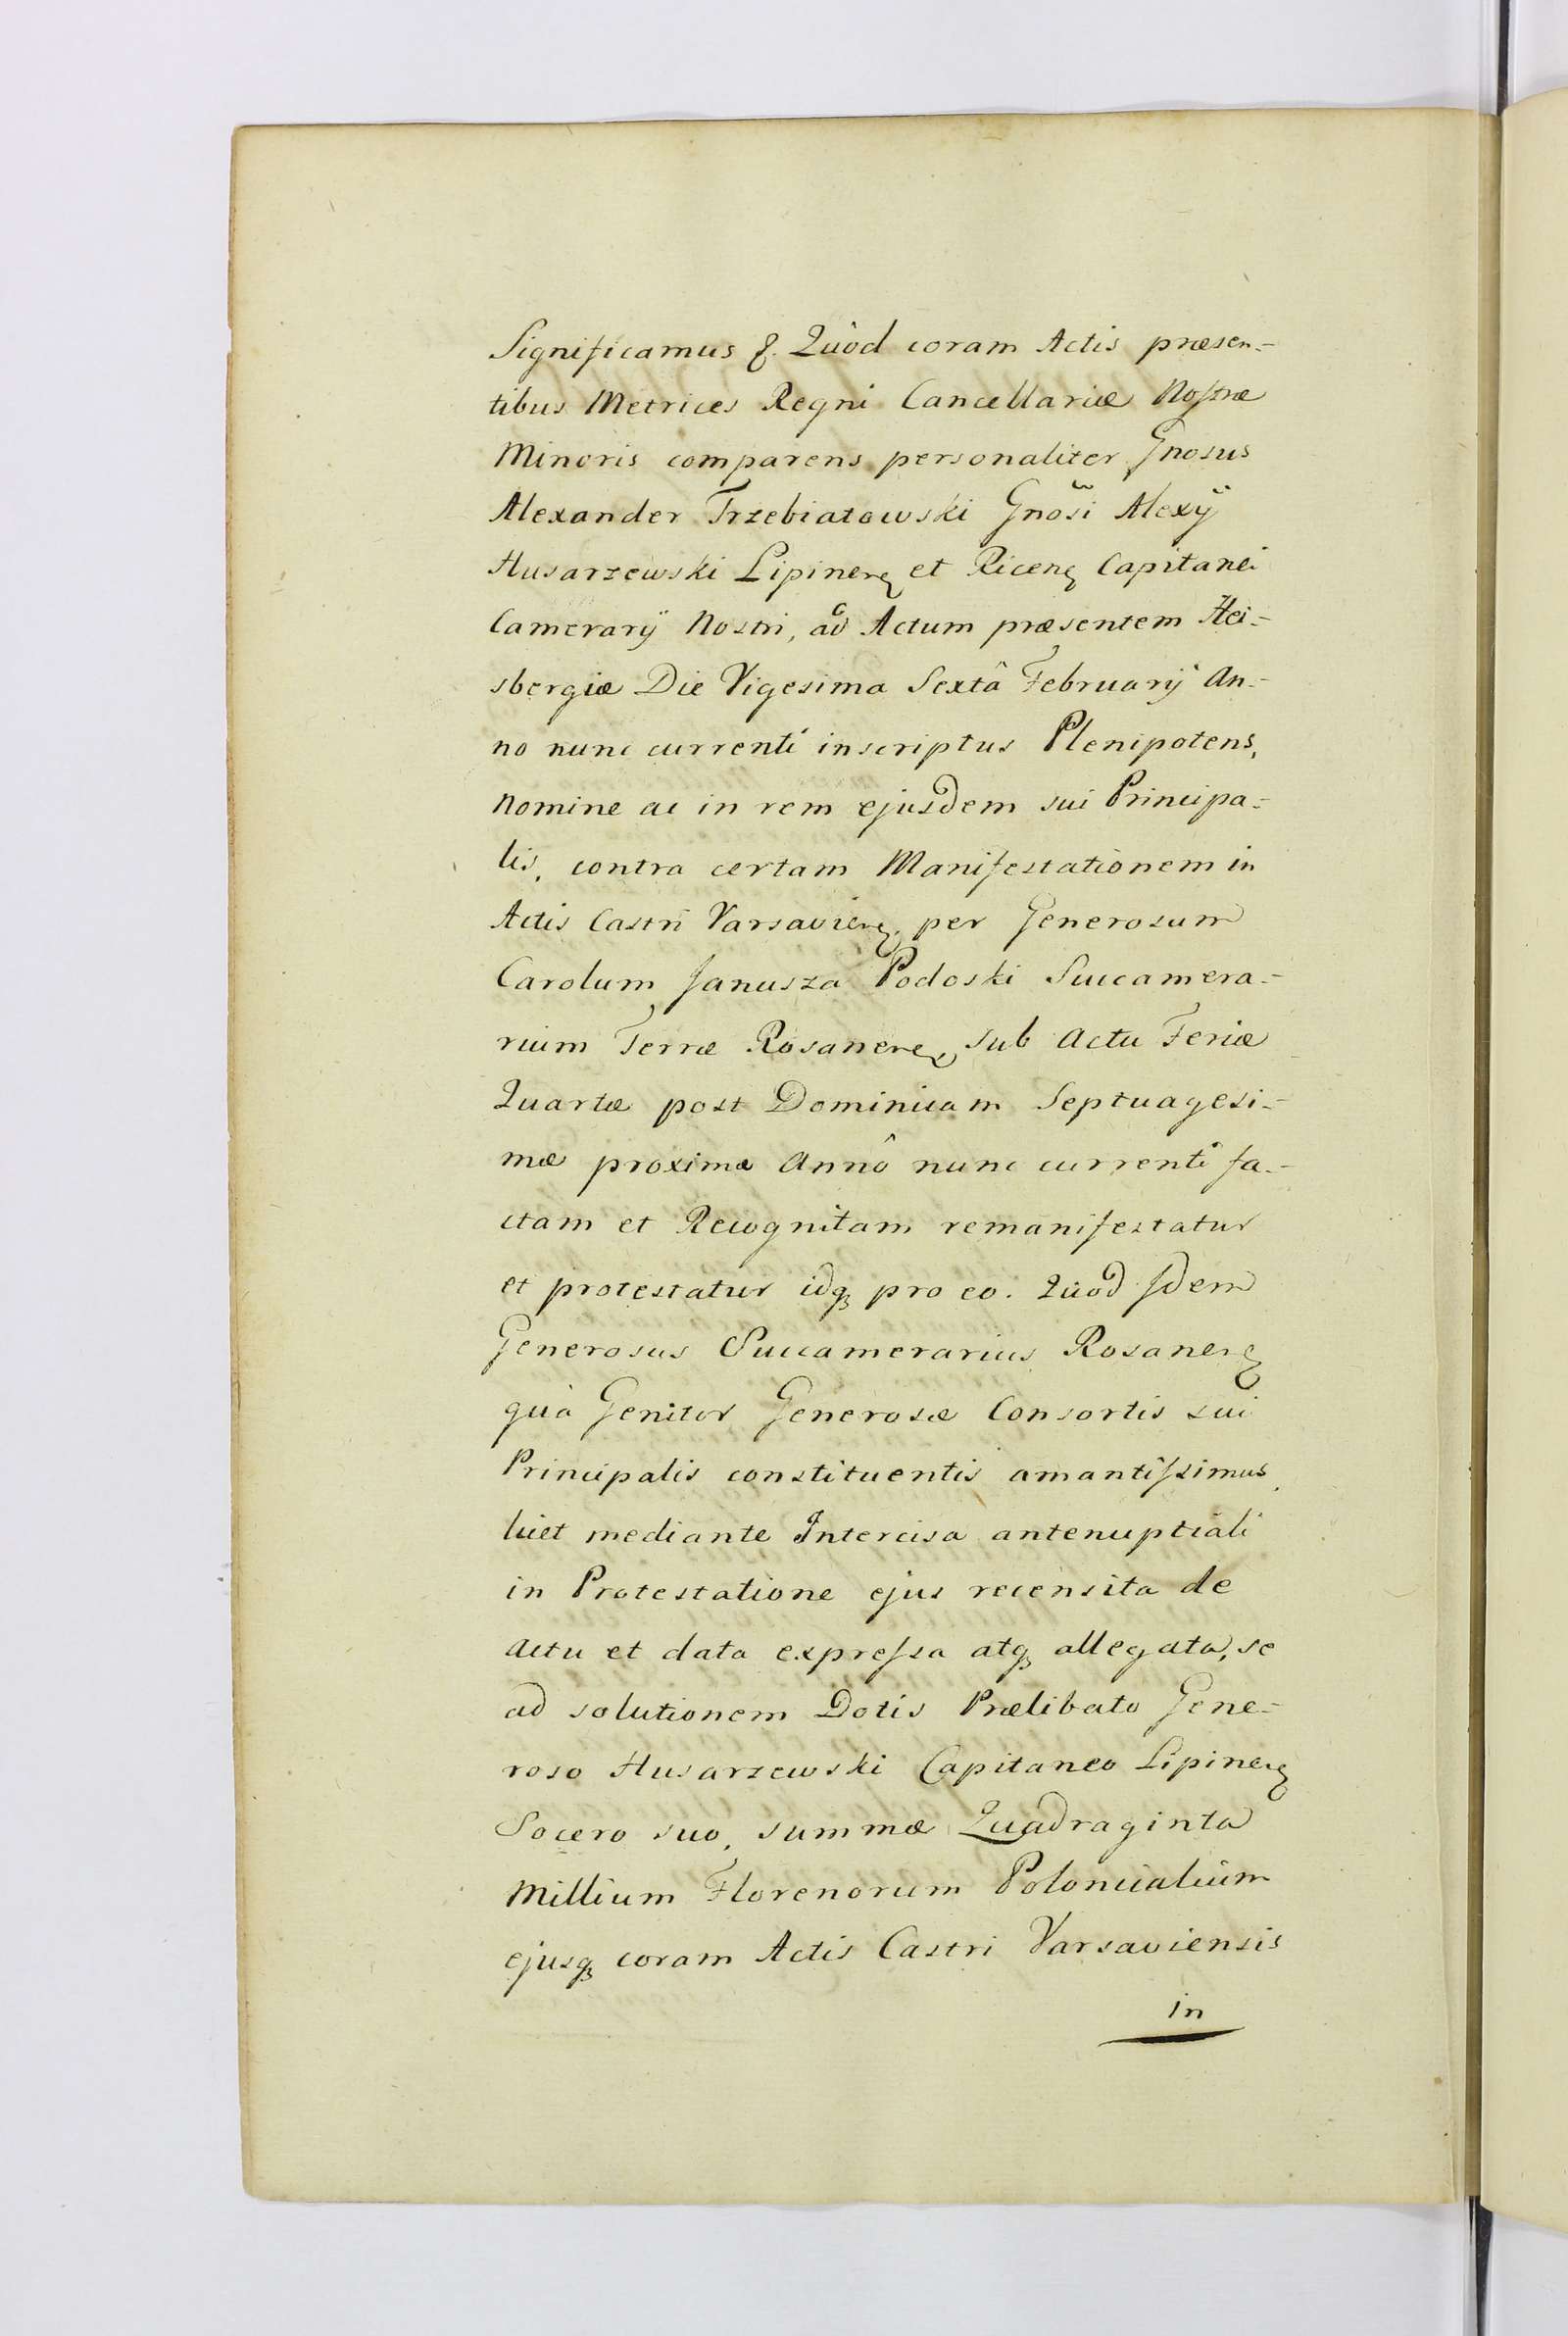 Significamus &. Quòd coram Actis præsen-
tibus Metrices Regni Cancellariæ Nostræ
Minoris comparens personaliter Gnosus
Alexander Trzebiatowski Gnosi Alexÿ
Husarzewski Lipinenꝭ et Ricenꝭ Capitanei
Camerarÿ Nostri, ad Actum præsentem Hei-
sbergiæ Die Vigesima Sextâ Februarÿ An-
no nunc currenti inscriptus Plenipotens,
Nomine ac in rem ejusdem sui Principa-
lis, contra certam Manifestationem in
Actis Castri Varsavienꝭ. per Generosum
Carolum Janusza Podoski Succamera-
rium Terræ Rosanenꝭ, sub Actu Feriæ
Quartæ post Dominicam Septuagesi-
mæ proximæ Annô nunc currenti fa-
ctam et Recognitam remanifestatur
et protestatur idqꝫ pro eo. Quod Idem
Generosus Succamerarius Rosanenꝭ
quà Genitor Generosæ Consortis sui
Principalis constituentis amantissimus,
licet mediante Intercisa antenuptiali
in Protestatione ejus recensita de
actu et data expressa atqꝫ allegata, se
ad solutionem Dotis Prælibato Gene-
roso Husarzewski Capitaneo Lipinenꝭ
Socero suo, summæ Quadraginta
Millium Florenorum Polonicalium
ejusqꝫ coram Actis Castri Varsaviensis
in